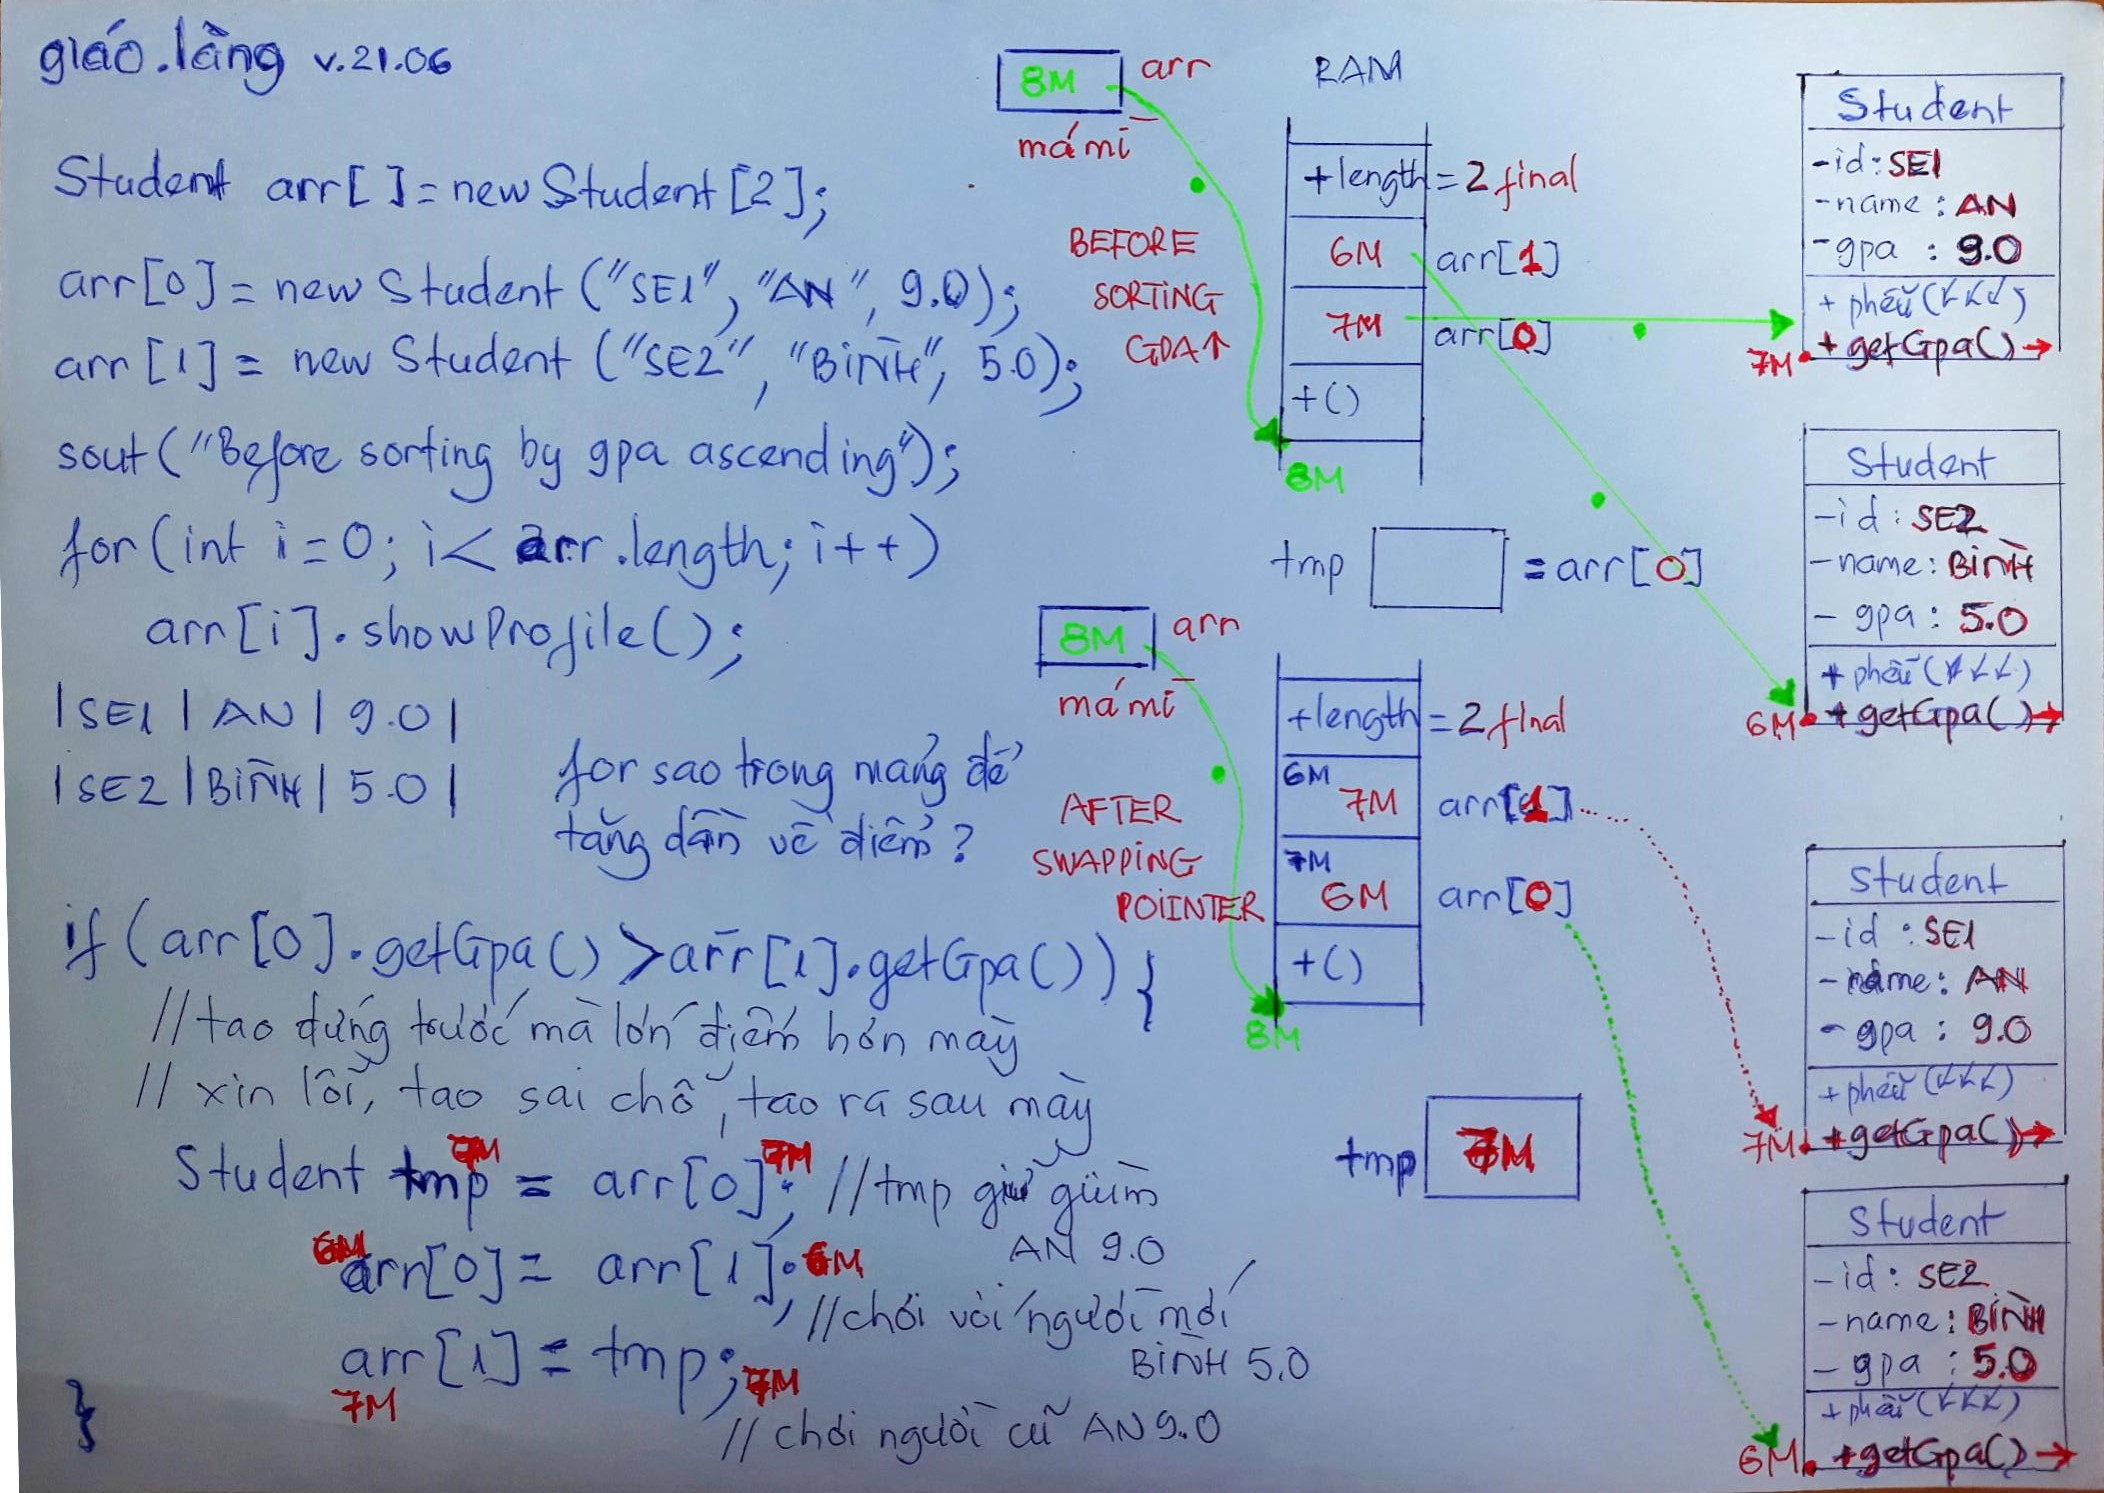 giáo.làng v.21.06
Student arr[ ] = new Student [2];
arr[0] = new Student ("SE1", "AN", 9.0);
arr[1] = new Student ("SE2", "BÌNH", 5.0);
sout ("Before sorting by gpa ascending");
for (int i = 0; i < arr.length; i++)
arr[i].showProfile();
|SE1 | AN | 9.0|
|SE2 | BÌNH | 5.0|
for sao trong mảng để
tăng dần về điểm?
if (arr[0].getGpa() > arr[1].getGpa()) {
//tao đứng trước mà lớn điểm hơn mày
// xin lỗi, tao sai chỗ, tao ra sau mày
7M 7M
Student tmp = arr[0]; //tmp giữ gùim
AN 9.0
6M arr[0] = arr[1]; 6M
//chơi với người mới
BÌNH 5.0
arr[1] = tmp; 7M
7M
// chơi người cũ AN 9.0
}
8M arr
má mì
BEFORE
SORTING
GPA↑
RAM
+length = 2 final
6M arr[1]
7M arr[0]
+()
8M
tmp = arr[0]
8M arr
má mì
AFTER
SWAPPING
POIINTER
+length = 2 final
6M 7M arr[1]
7M 6M arr[0]
+()
8M
tmp 7M
Student
-id: SE1
-name: AN
-gpa : 9.0
+ phễu (↙↙↙)
7M + getGpa() →
Student
-id: SE2
-name: BÌNH
- gpa : 5.0
+ phễu (↙↙↙)
6M + getGpa() →
Student
-id : SE1
-name: AN
- gpa : 9.0
+ phễu (↙↙↙)
7M +getGpa() →
Student
-id: SE2
-name: BÌNH
- gpa : 5.0
+ phễu (↙↙↙)
6M +getGpa() →